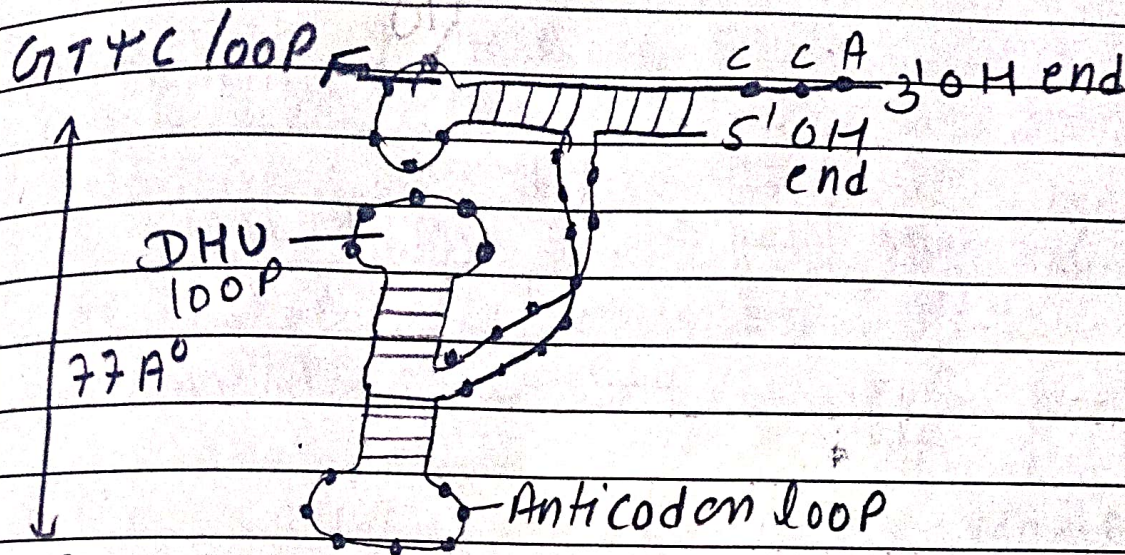 GTΨC loop
C C A 3' OH end
5' OH
end
DHU
loop
77A°
Anticodon loop